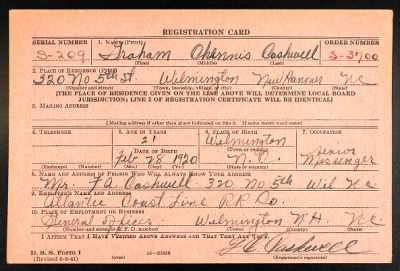 REGISTRATION CARD
SERIAL NUMBER 1. NAME (Print) ORDER NUMBER
S-209 Graham Chennis Cashwell S-3700
(First) (Middle) (Last)
2. PLACE OF RESIDENCE (Print)
320 No 5th St. Wilmington New Hanover N.C.
(Number and street) (Town, township, village, or city) (County) (State)
[THE PLACE OF RESIDENCE GIVEN ON THE LINE ABOVE WILL DETERMINE LOCAL BOARD
JURISDICTION; LINE 2 OF REGISTRATION CERTIFICATE WILL BE IDENTICAL]
3. MAILING ADDRESS
[Mailing address if other than place indicated on line 2. If same, insert word same]
4. TELEPHONE 5. AGE IN YEARS 6. PLACE OF BIRTH 7. OCCUPATION
21 Wilmington Senior
DATE OF BIRTH (Town or county)
Feb 28 1920 N.C. Messenger
(Mo.) (Day) (Yr.) (State or country)
8. NAME AND ADDRESS OF PERSON WHO WILL ALWAYS KNOW YOUR ADDRESS
Mr. F.A. Cashwell 320 No 5th Wil N.C.
9. EMPLOYER'S NAME AND ADDRESS
Atlantic Coast Line R.R. Co.
10. PLACE OF EMPLOYMENT OR BUSINESS
General Offices Wilmington N.H. N.C.
(Number and street or R. F. D. number) (Town) (County) (State)
I AFFIRM THAT I HAVE VERIFIED ABOVE ANSWERS AND THAT THEY ARE TRUE.
Cashwell
D. S. S. Form 1
(Revised 6-9-41)